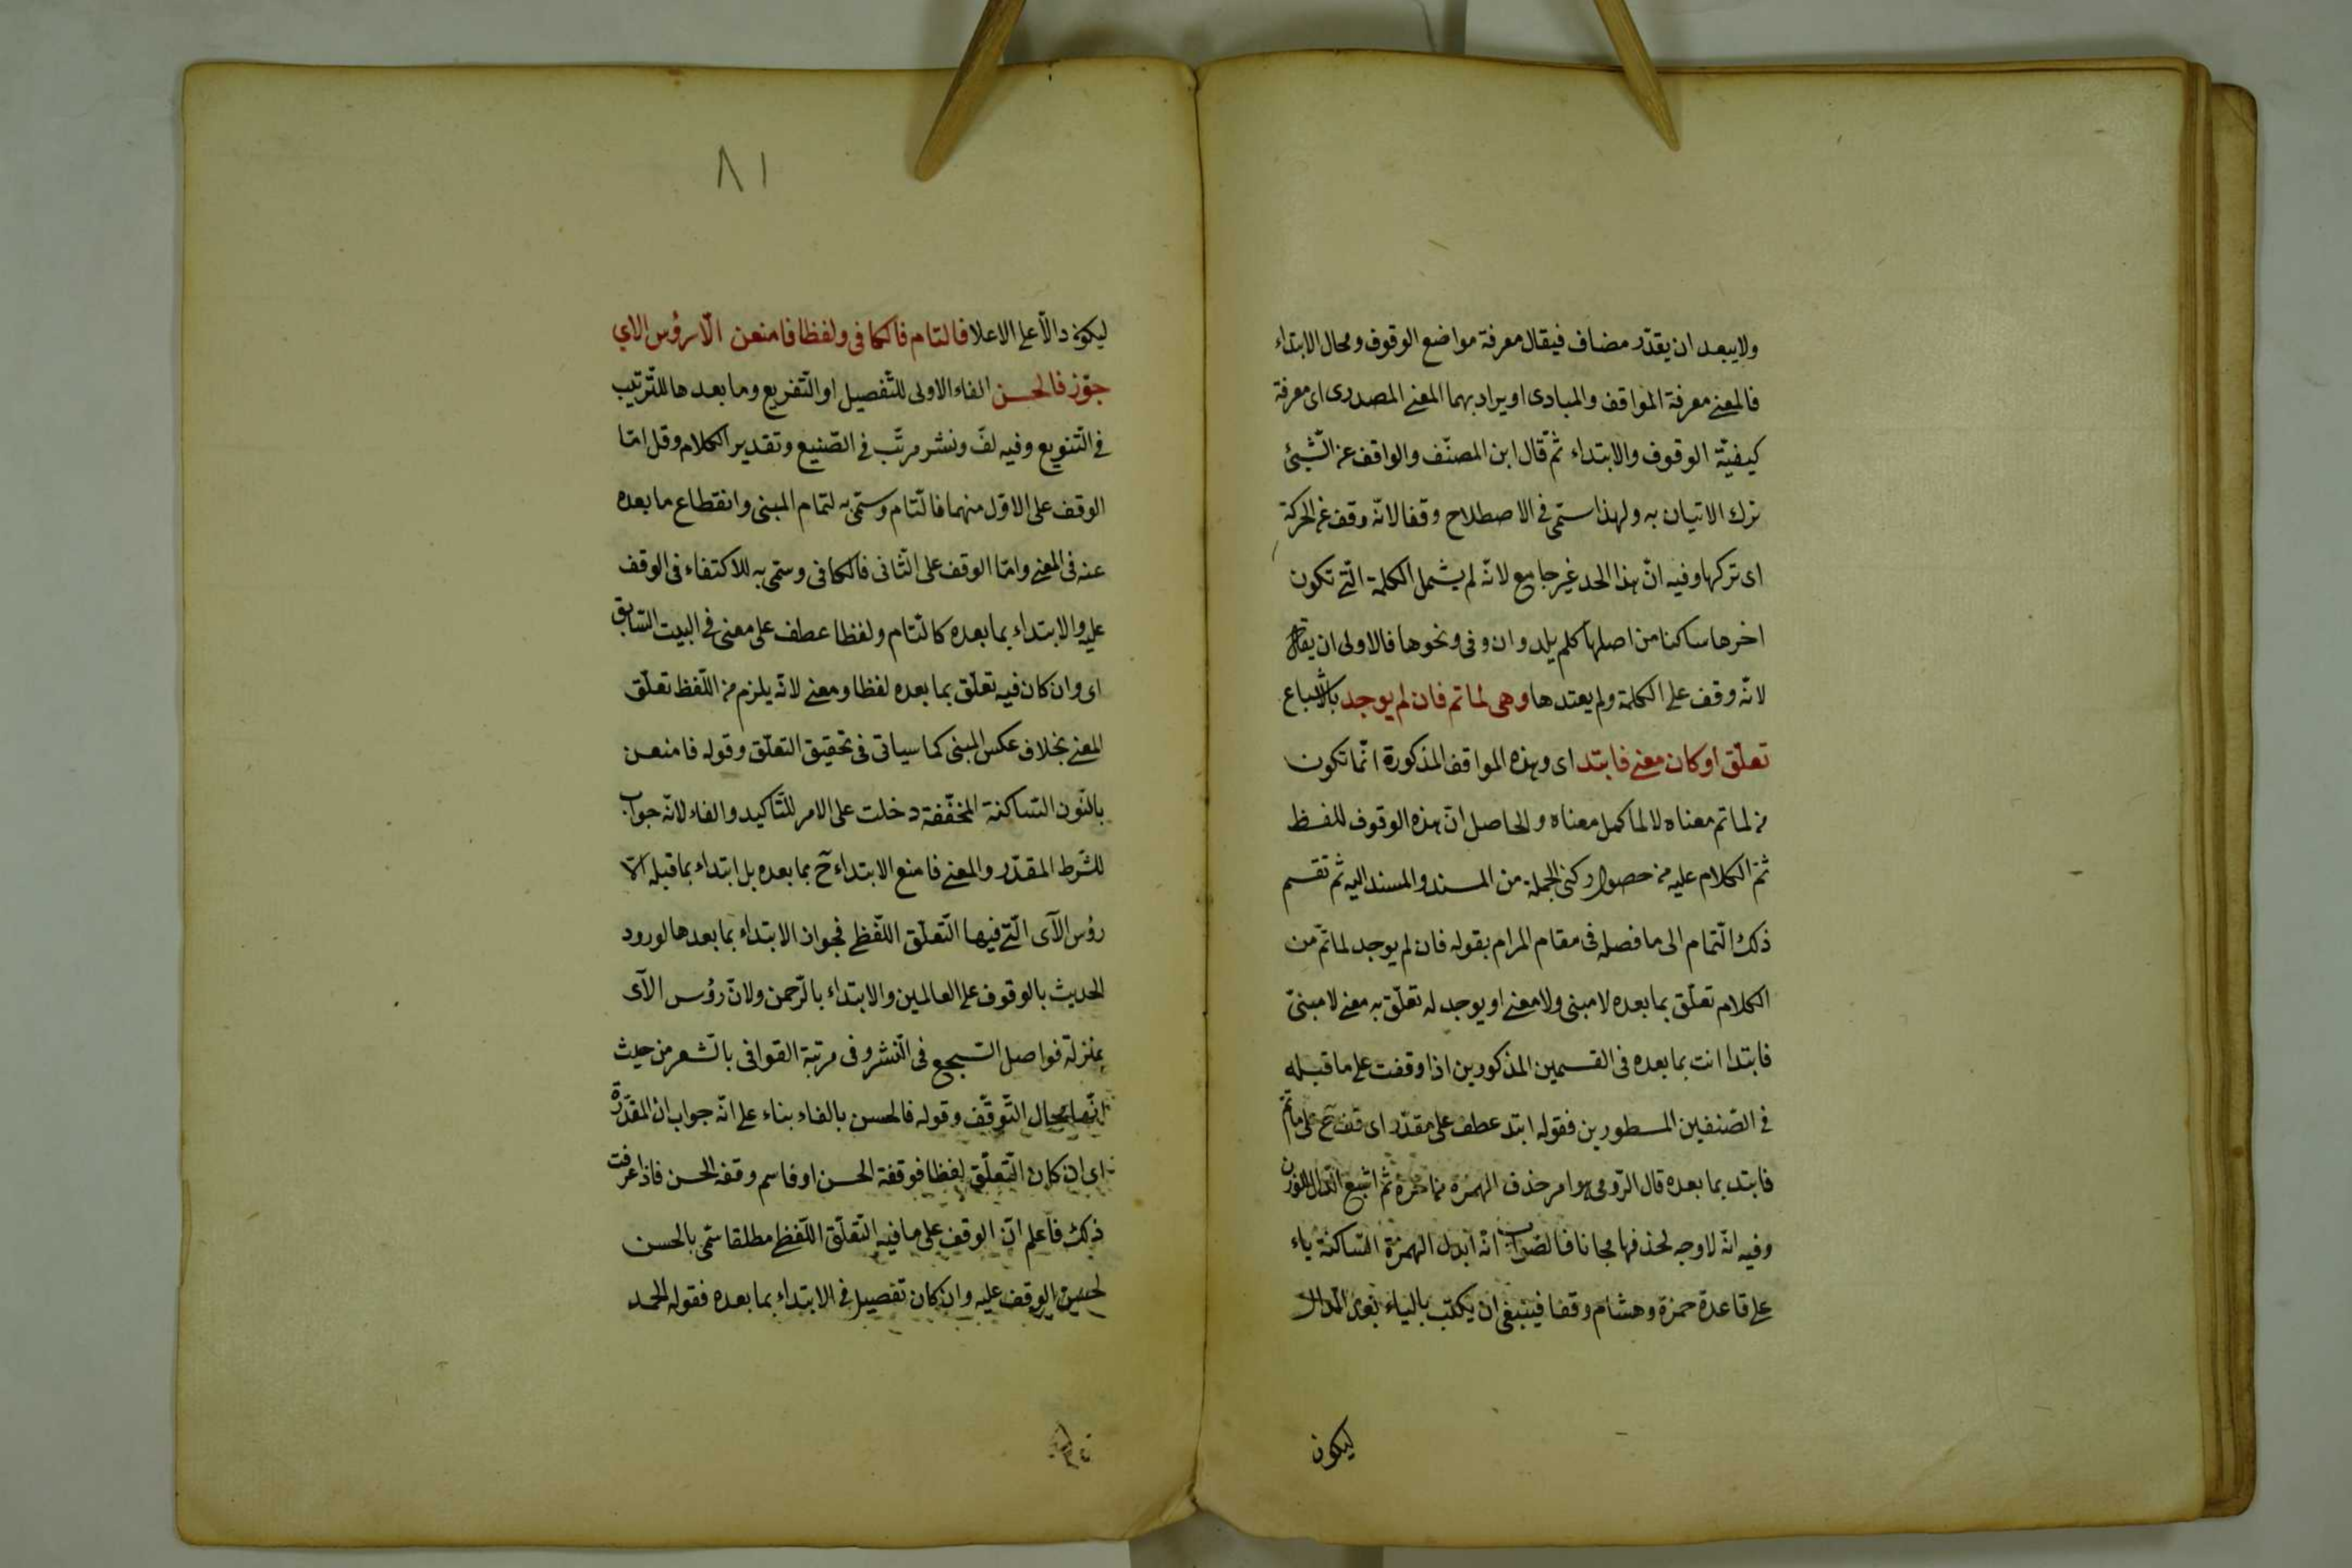 ولا يبعد ان يقدّر مضاف فيقال معرفة مواضع الوقوف ومحال الابتداء
فالمعنے معرفة المواقف والمبادى او يراد بهما المعنے المصدرى اى معرفة
كيفيّة الوقوف والابتداء ثمّ قال ابن المصنّف والواقف عن الشّيئ
ترك الاتيان به ولهذا سمّى فى الاصطلاح وقفا لانّه وقف عن الحركة
اى تركها وفيه انّ هذا الحد غير جامع لانّه لم يشمل الكلمة الّتے تكون
اخرها ساكنا من اصلها كلم يلد وان وفى ونحوها فالاولى ان يقال
لانّه وقف علے الكلمة ولم يعتدها وهى لما تم فان لم يوجد بالاشباع
تعلّق او كان معنے فابتد اى وهذه المواقف المذكورة انّما تكون
لما تم معناه لا لما كمل معناه والحاصل انّ هذه الوقوف للفظ
ثمّ الكلام عليه من حصول ركنى الجملة من المسند والمسند اليه ثم تقسم
ذلك التّمام الى ما فصله فى مقام المرام بقوله فان لم يوجد لما تمّ من
الكلام تعلّق بما بعده لا مبنى ولا معنے او يوجد له تعلّق به معنے لا مبنىّ
فابتدا انت بما بعده فى القسمين المذكورين اذا وقفت علے ما قبله
فى الصّنفين المسطورين فقوله ابتد عطف على مقدّر اى قف ح على ما تمّ
فابتد بما بعده قال الرّومى هوا مر حذف الهمزة ثم اشبع الدّال للوزن
وفيه انّه لا وجه لحذفها مجانا فالصّواب انّه ابدل الهمزة السّاكنة ياء
علے قاعدة حمزة وهشام وقفا فينبغى ان يكتب بالياء بعد الدّال
ليكون
٨١
ليكون دالّا علے الاعلا فالتام فالكافى ولفظا فامنعن الّا رؤس الاي
جوّز فالحسن الفاء الاولى للتّفصيل او التّفريع وما بعدها للتّرتيب
فى التّنويع وفيه لفّ ونشر مرتّب فى الصّنيع وتقدير الكلام وقل امّا
الوقف على الاوّل منهما فالتّام وسمّى به لتمام المبنى وانقطاع ما بعده
عنه فى المعنے وامّا الوقف على الثّانى فالكافى وسمّى به للاكتفاء فى الوقف
عليه والابتداء بما بعده كالتّام ولفظا عطف على معنى فى البيت السّابق
اى وان كان فيه تعلّق بما بعده لفظا ومعنے لانّه يلزم من اللّفظ تعلّق
المعنے بخلاف عكس المبنى كما سياتى فى تحقيق التعلّق وقوله فامنعن
بالنّون السّاكنة المخفّفة دخلت على الامر للتّاكيد والفاء لانّه جواب
للشّرط المقدّر والمعنے فامنع الابتداء ح بما بعده بل ابتداء بما قبله الّا
رؤس الآى الّتے فيها التّعلّق اللّفظے فجواز الابتداء بما بعدها لورود
الحديث بالوقوف علے العالمين والابتداء بالرّحمن ولانّ رؤس الآى
بمنزلة فواصل السّجع فى النّشر وفى مرتبة القوافى بالشّعر من حيث
انّها محال التّوقّف وقوله فالحسن بالفاء بناء علے انّه جواب ان المقدّرة
اى ان كان التّعلّق لفظا فوقفة الحسن او فاسم وقفه الحسن فاذا عرفت
ذلك فاعلم انّ الوقف على ما فيه التّعلّق اللّفظے مطلقا سمّى بالحسن
لحسن الوقف عليه وان كان تفصيل فى الابتداء بما بعده فقوله الحمد